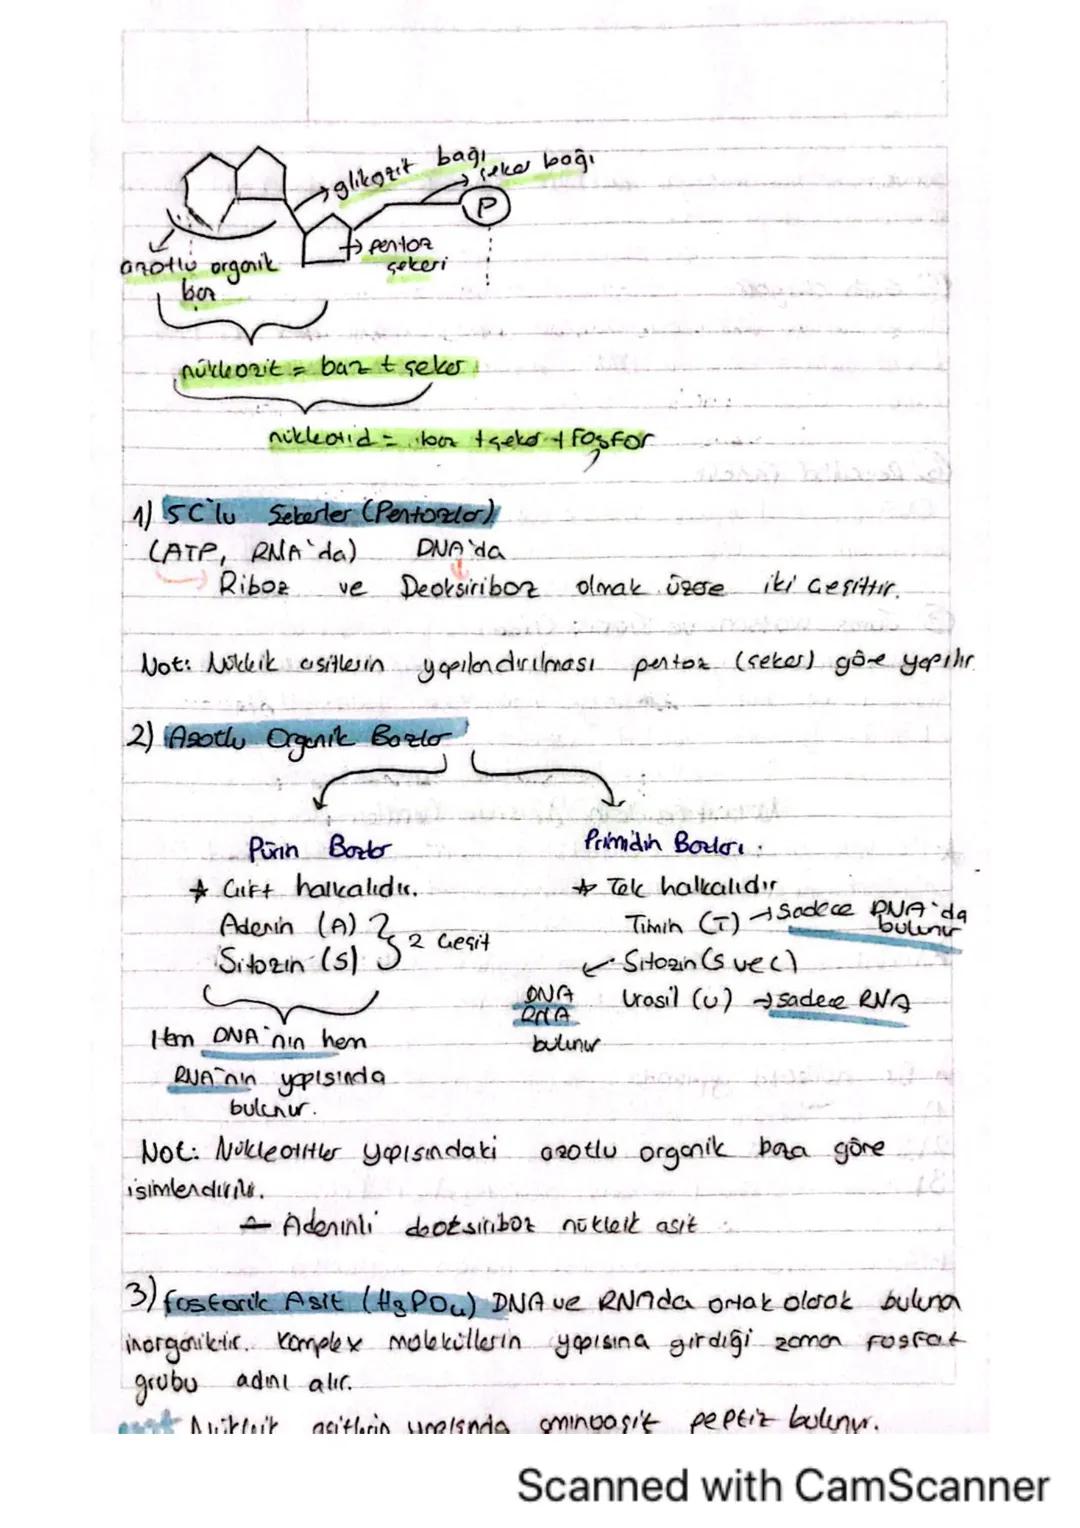 glikozit bağı
şeker bağı
P
pentoz
şekeri
azotlu organik
baz
nükleozit = baz + şeker
nükleotid = baz + şeker + fosfor
1) 5C'lu Şekerler (Pentozlar)
(ATP, RNA'da) DNA'da
Riboz ve Deoksiriboz olmak üzere iki çeşittir.
Not: Nükleik asitlerin yapılandırılması pentoz (şeker) göre yapılır
2) Azotlu Organik Bazlar
Pürin Bazlar Primidin Bazları:
* Çift halkalıdır. * Tek halkalıdır
Adenin (A) 2 çeşit Timin (T) → Sadece DNA'da bulunur
Sitozin (S) Sitozin (S ve C)
DNA RNA bulunur Urasil (U) → sadece RNA
Hem DNA'nın hem
RNA'nın yapısında
bulunur.
Not: Nükleotitler yapısındaki azotlu organik baza göre
isimlendirilir.
Adeninli deoksiriboz nükleik asit
3) Fosforik Asit (H3PO4) DNA ve RNAda ortak olarak bulunan
inorganiktir. Komplex moleküllerin yapısına girdiği zaman fosfat
grubu adını alır.
Nükleik asitlerin yapısında aminoasit peptiz bulunur.
Scanned with CamScanner